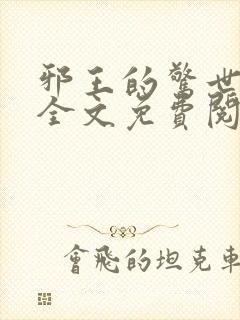 邪王的驚世
全文免費閱
會飛的坦克車